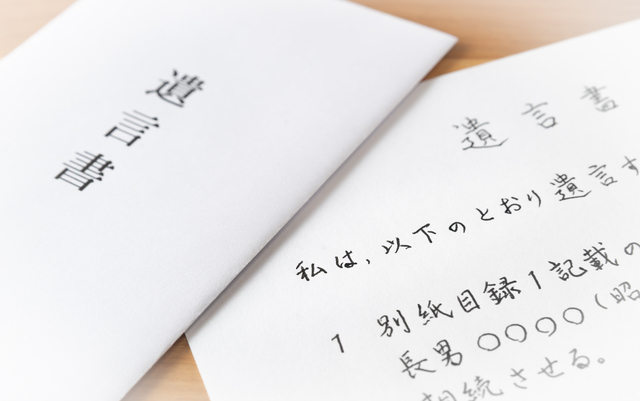 遺言書
遺言書
私は、以下のとおり遺言す
1 別紙目録1記載の
長男○○○○(昭
相続させる。